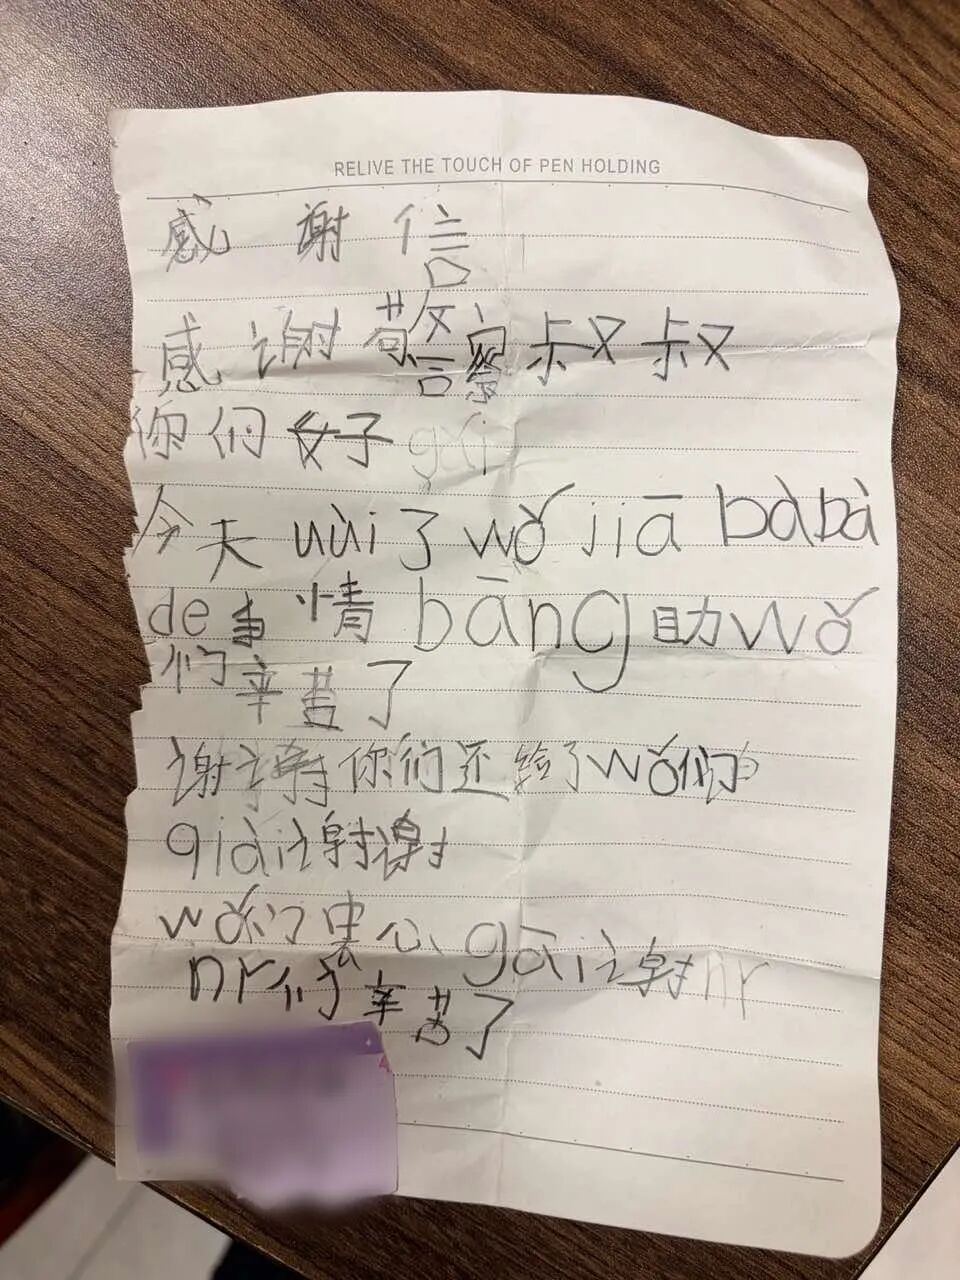 RELIVE THE TOUCH OF PEN HOLDING
感谢信
感谢警察叔叔
你们好 gāi
今天 uùi了wǒ jiā bàbà
de事情 bāng助wǒ
们辛苦了
谢谢你们还给了wǒ们
qiāi谢谢
wǒ们衷心gāi谢nr
nr们辛苦了